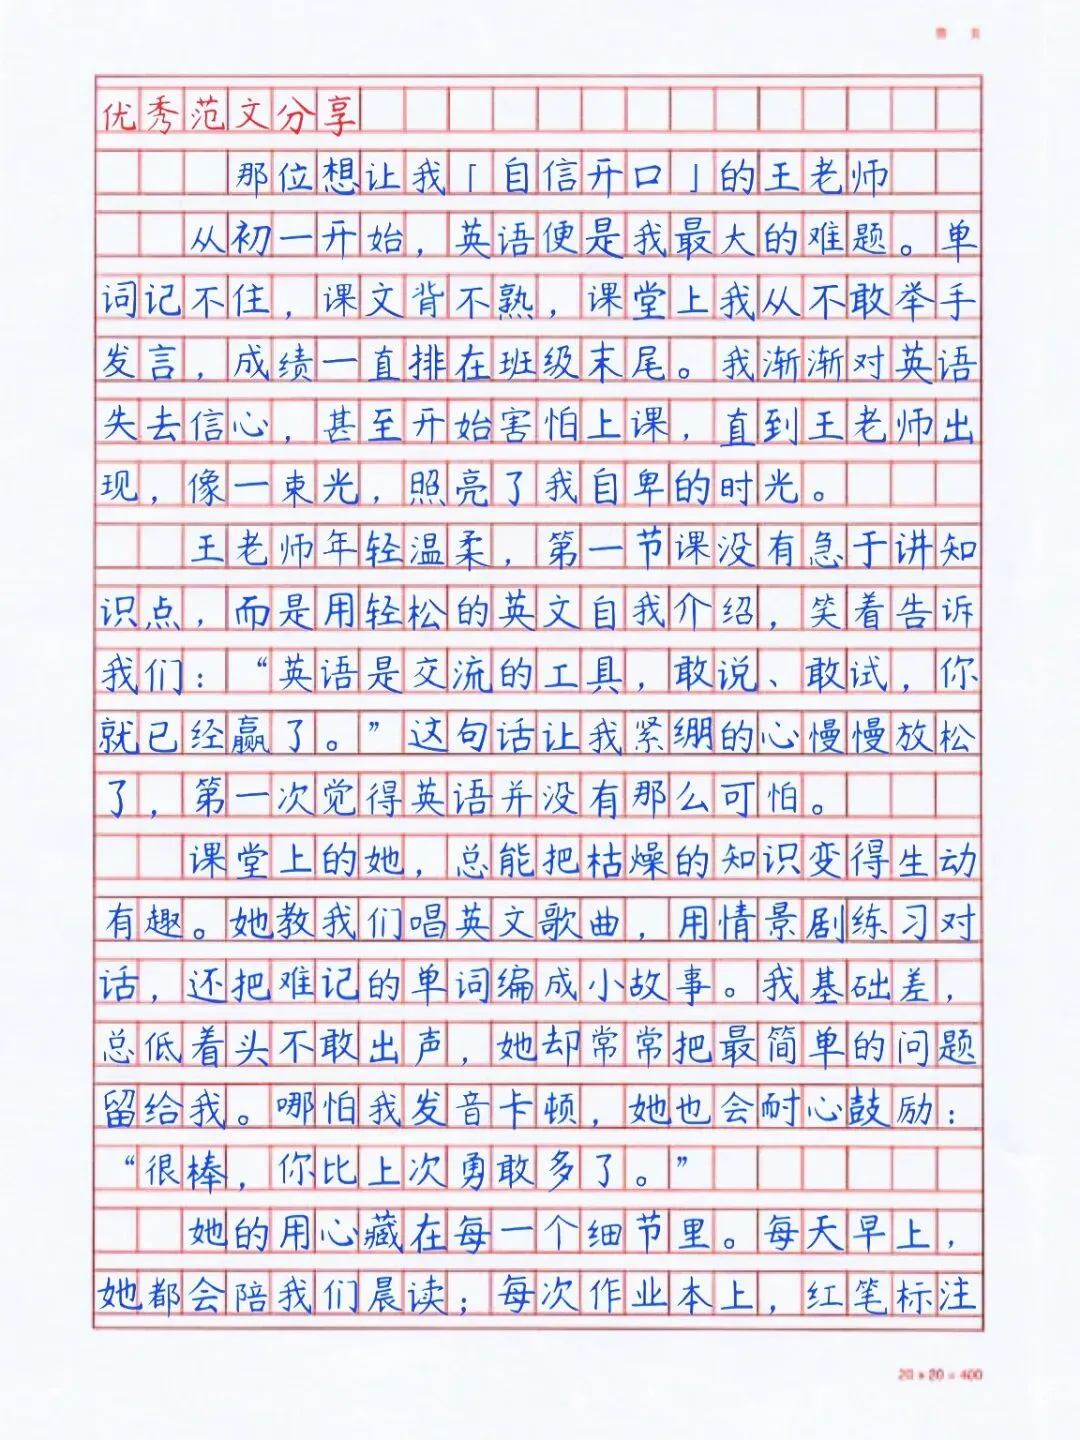 优秀范文分享
那位想让我「自信开口」的王老师
从初一开始，英语便是我最大的难题。单
词记不住，课文背不熟，课堂上我从不敢举手
发言，成绩一直排在班级末尾。我渐渐对英语
失去信心，甚至开始害怕上课，直到王老师出
现，像一束光，照亮了我自卑的时光。
王老师年轻温柔，第一节课没有急于讲知
识点，而是用轻松的英文自我介绍，笑着告诉
我们：“英语是交流的工具，敢说、敢试，你
就已经赢了。”这句话让我紧绷的心慢慢放松
了，第一次觉得英语并没有那么可怕。
课堂上的她，总能把枯燥的知识变得生动
有趣。她教我们唱英文歌曲，用情景剧练习对
话，还把难记的单词编成小故事。我基础差，
总低着头不敢出声，她却常常把最简单的问题
留给我。哪怕我发音卡顿，她也会耐心鼓励：
“很棒，你比上次勇敢多了。”
她的用心藏在每一个细节里。每天早上，
她都会陪我们晨读；每次作业本上，红笔标注
20×20=400